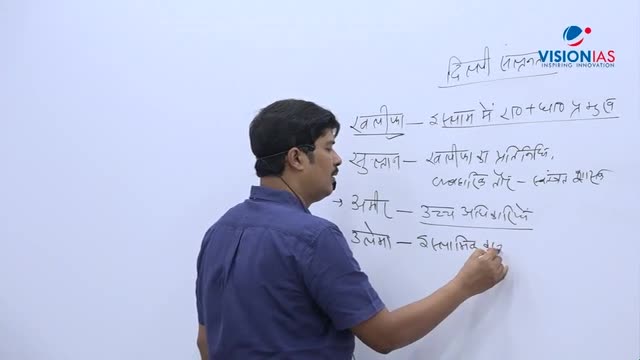 VISIONIAS
INSPIRING INNOVATION
दिल्ली सल्तनत
खलीफा – इस्लाम में रा० + धा० प्रमुख
सुल्तान – खलीफा का प्रतिनिधि,
व्यवहारिक तौर – स्वतंत्र शासक
→ अमीर – उच्च अधिकारियों
उलेमा – इस्लामिक